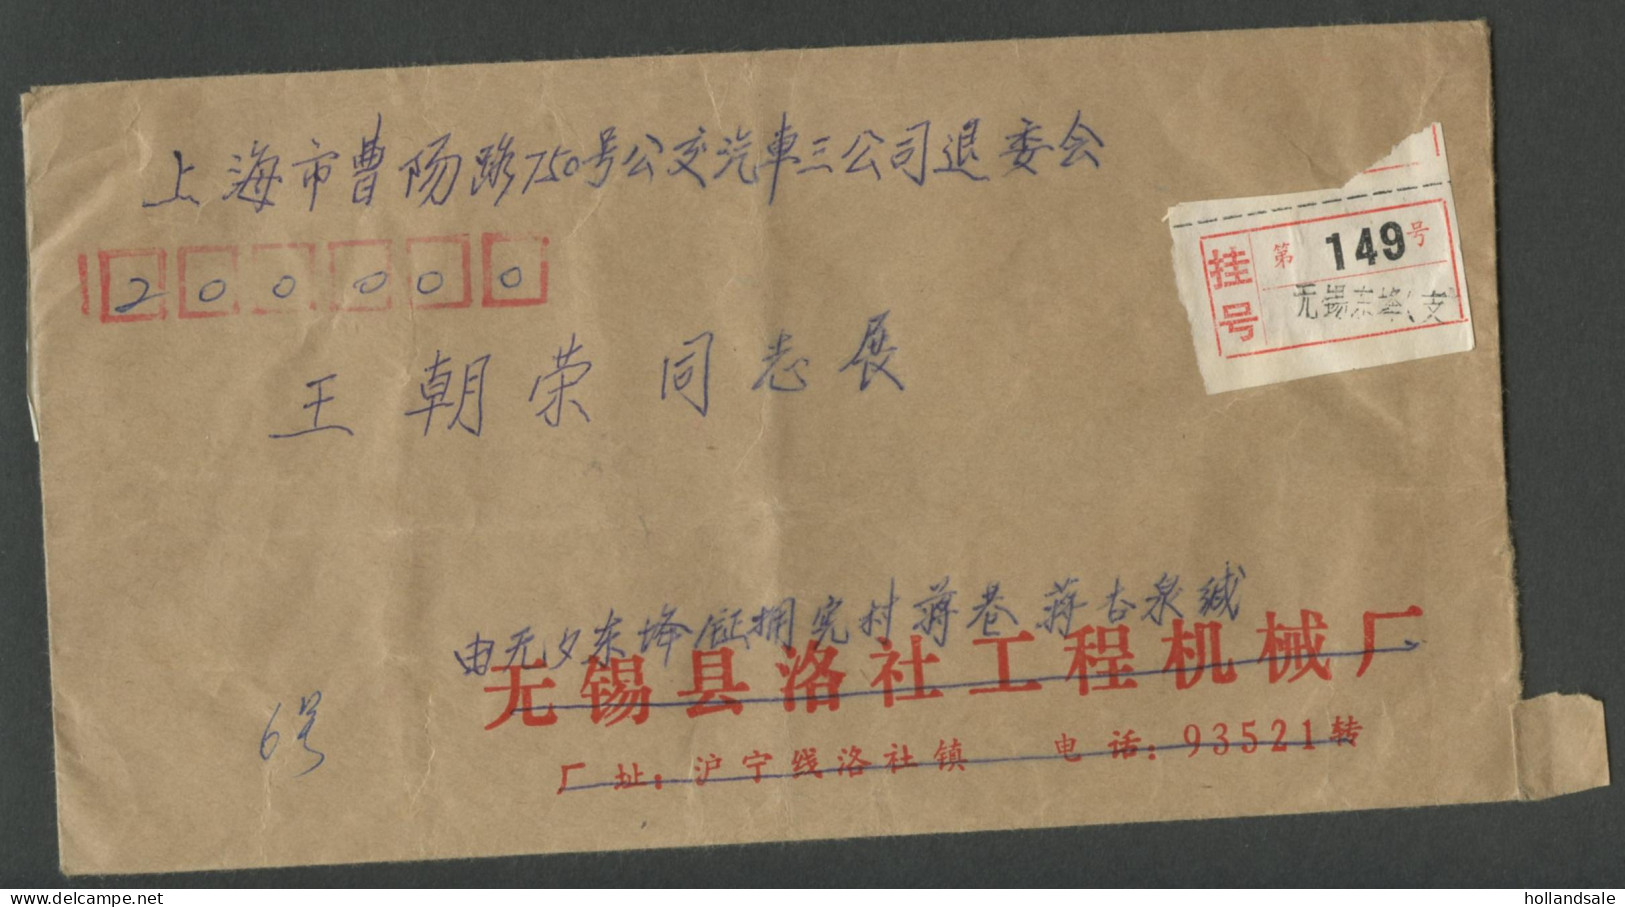 上海市曹阳路750号公交汽車三公司退委会
200000
王朝荣同志展
挂号
第149号
无锡东𡍼(支
由无夕东𡍼
村蒋巷 蒋
泉缄
无锡县洛社工程机械厂
厂址:沪宁线洛社镇 电话:93521转
6号
hollandsale